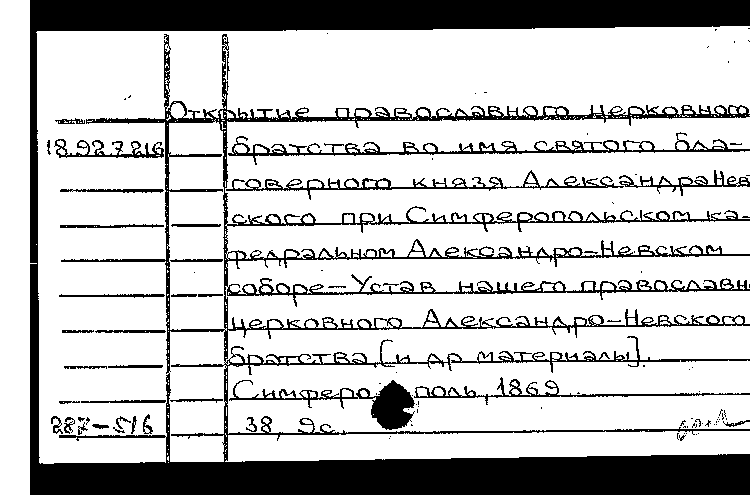 Открытие православного церковного
18.927.216 братства во имя святого бла-
говерного князя Александра Нев
ского при Симферопольском ка-
федральном Александро-Невском
соборе - Устав нашего православн
церковного Александро-Невского
братства [и др материалы].
Симферополь, 1869
287-516 38, 9с.